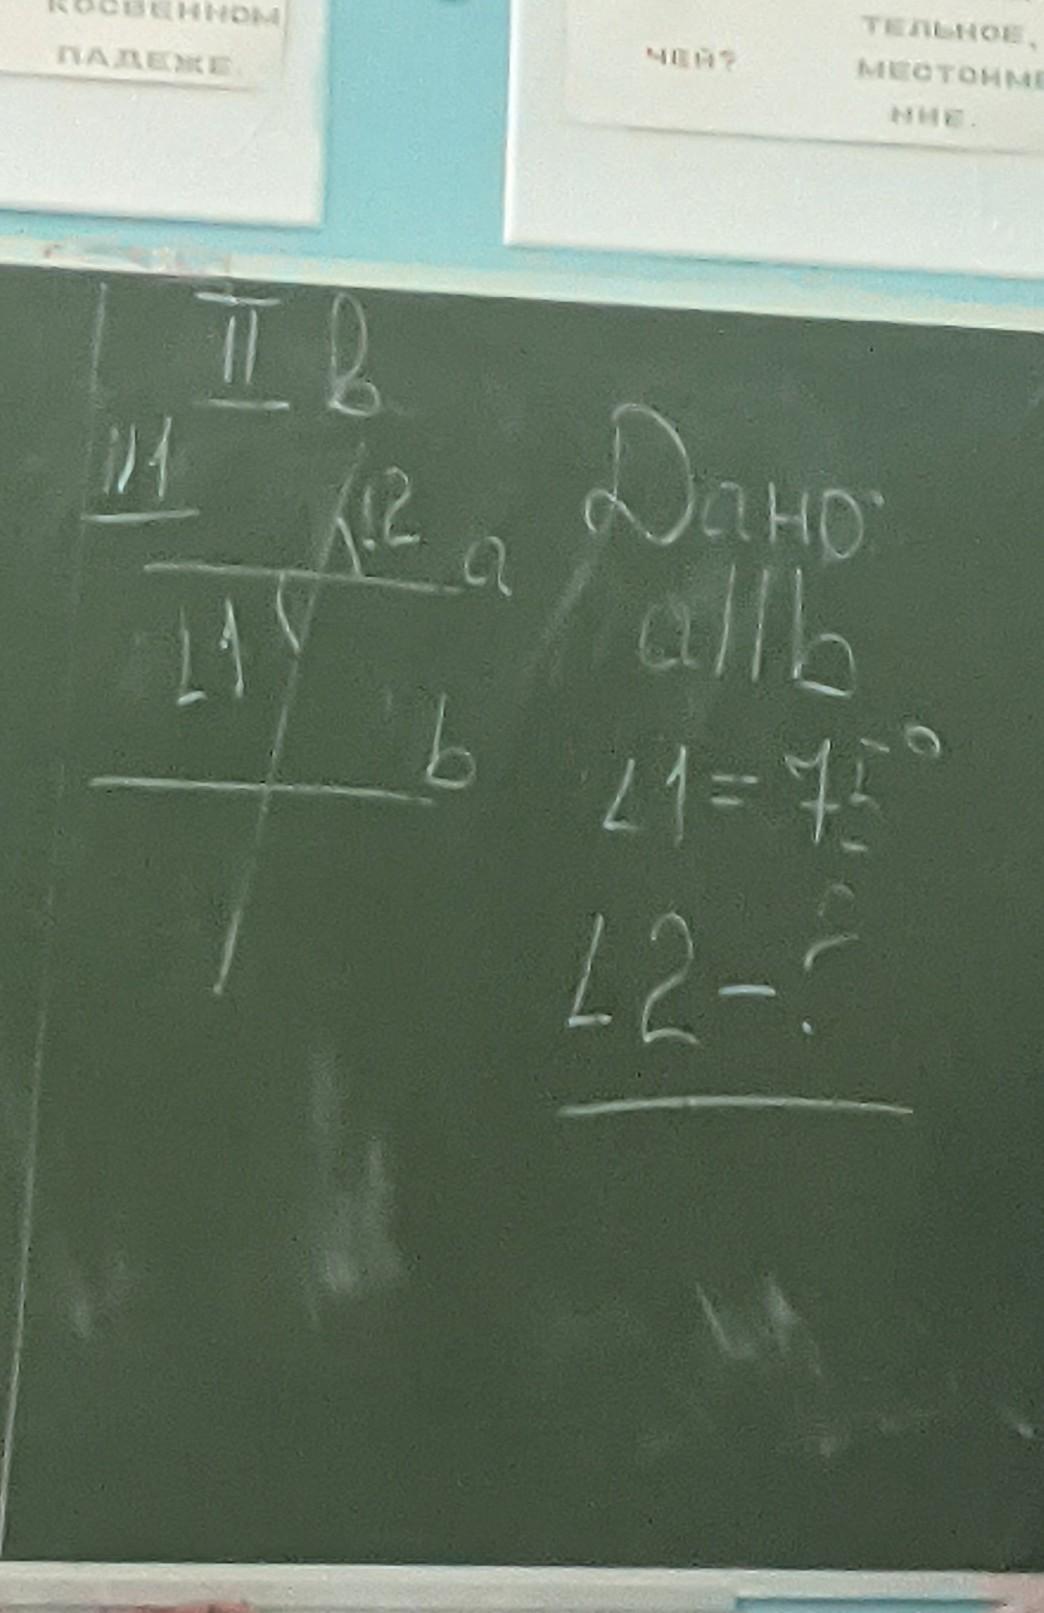 КОСВЕННОМ
ПАДЕЖЕ.
ЧЕЙ?
ТЕЛЬНОЕ,
МЕСТОИМЕ
НИЕ.
II В
№1
∠2
a
∠1
b
Дано:
a||b
∠1=75°
∠2-?